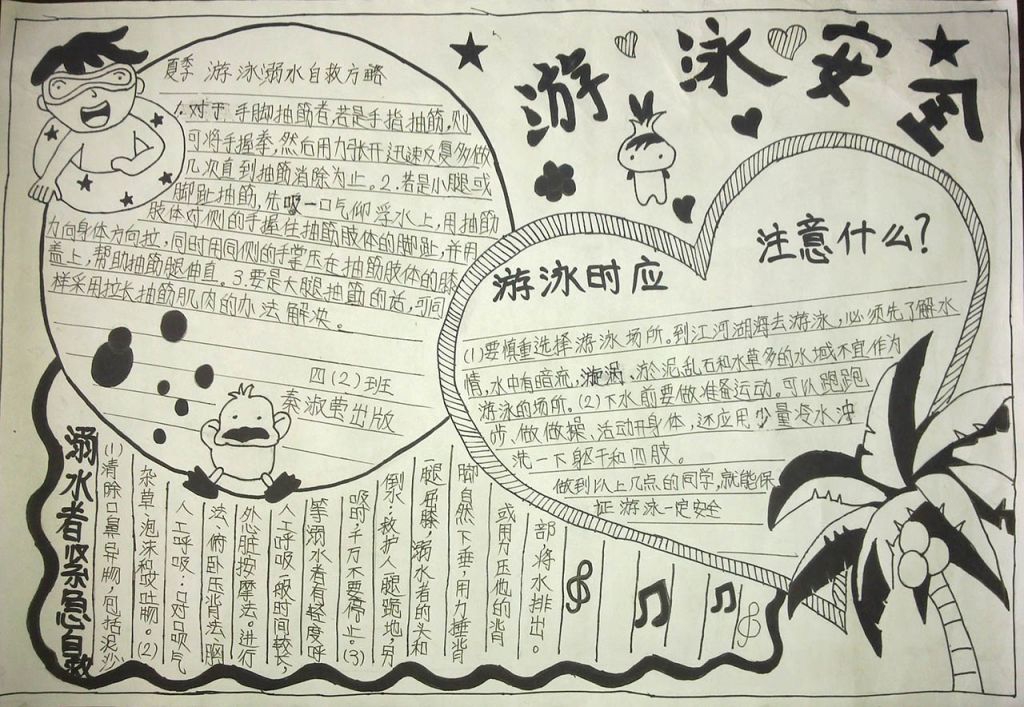 游泳安全
夏季 游泳溺水自救方略
1.对于手脚抽筋者,若是手指抽筋,则
可将手握拳,然后用力张开,迅速反复多做
几次直到抽筋消除为止。2.若是小腿或
脚趾抽筋,先吸一口气仰浮水上,用抽筋
肢体对侧的手握住抽筋肢体的脚趾,并用
力向身体方向拉,同时用同侧的手掌压在抽筋肢体的膝
盖上,帮助抽筋腿伸直。3.要是大腿抽筋的话,可同
样采用拉长抽筋肌肉的办法解决。
四(2)班
秦淑莹出版
游泳时应
注意什么?
(1)要慎重选择游泳场所。到江河湖海去游泳,必须先了解水
情,水中有暗流,漩涡、淤泥乱石和水草多的水域不宜作为
游泳的场所。(2)下水前要做准备运动。可以跑跑
步、做做操、活动开身体,还应用少量冷水冲
洗一下躯干和四肢。
做到以上几点的同学,就能保
证游泳一定安全
溺水者紧急自救
(1)清除口鼻异物,包括泥沙
杂草、泡沫和呕吐物。(2)
人工呼吸:口对口吹气
法、俯卧压背法、胸
外心脏按摩法。进行
人工呼吸一般时间较长,
等溺水者有轻度呼
吸时,千万不要停止。(3)
倒水:救护人一腿跪地,另
一腿屈膝,溺水者的头和
脚自然下垂,用力捶背
或用力压他的背
部,将水排出。